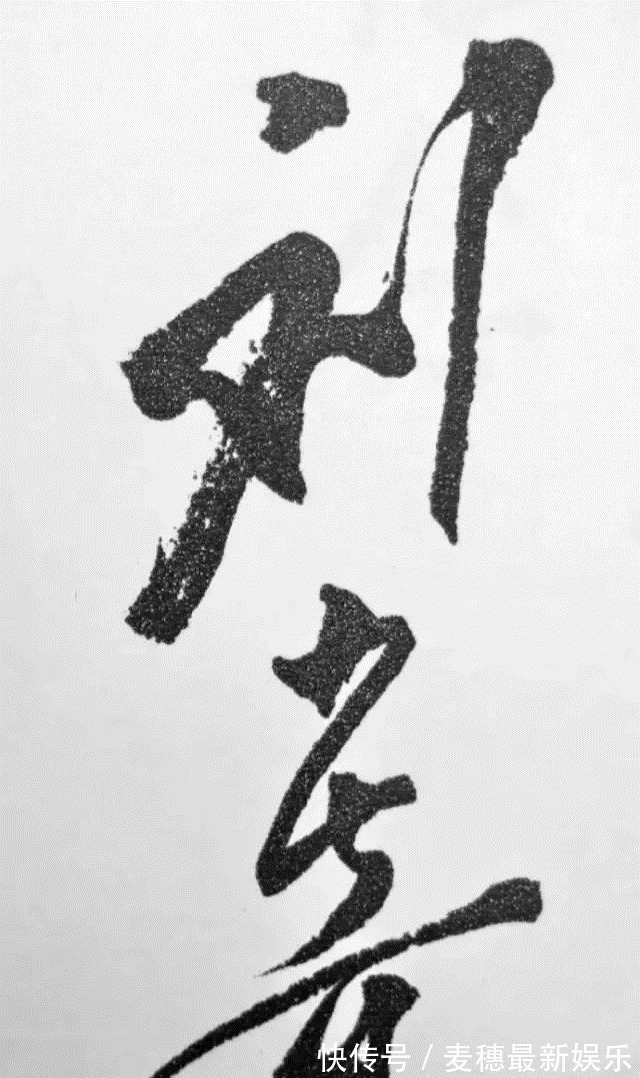 刘
快传号 / 麦穗最新娱乐